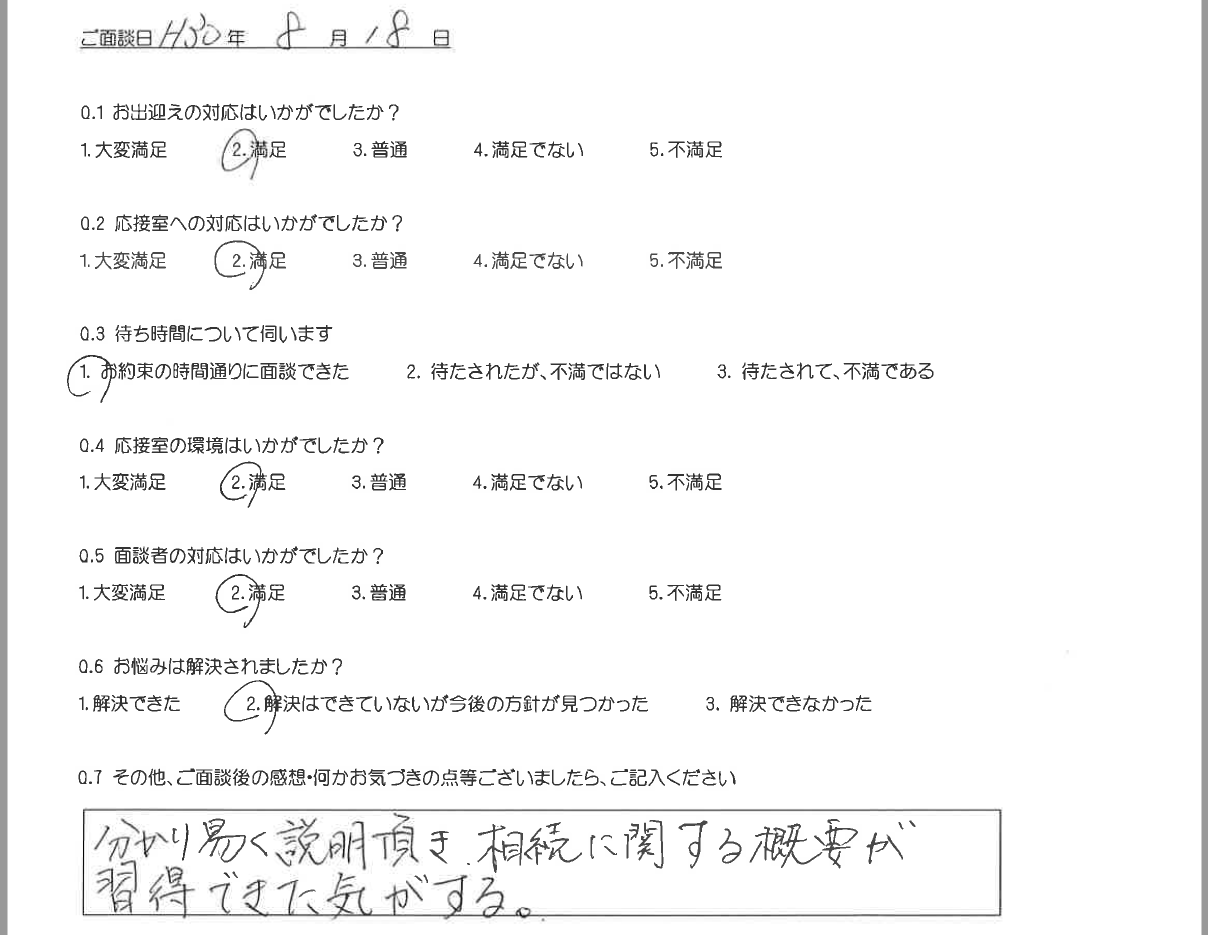 ご面談日 H30 年 8 月 18 日
Q.1 お出迎えの対応はいかがでしたか？
1.大変満足 2.満足 3.普通 4.満足でない 5.不満足
Q.2 応接室への対応はいかがでしたか？
1.大変満足 2.満足 3.普通 4.満足でない 5.不満足
Q.3 待ち時間について伺います
1. お約束の時間通りに面談できた 2. 待たされたが、不満ではない 3. 待たされて、不満である
Q.4 応接室の環境はいかがでしたか？
1.大変満足 2.満足 3.普通 4.満足でない 5.不満足
Q.5 面談者の対応はいかがでしたか？
1.大変満足 2.満足 3.普通 4.満足でない 5.不満足
Q.6 お悩みは解決されましたか？
1.解決できた 2.解決はできていないが今後の方針が見つかった 3. 解決できなかった
Q.7 その他、ご面談後の感想・何かお気づきの点等ございましたら、ご記入ください
分かり易く説明頂き、相続に関する概要が
習得できた気がする。